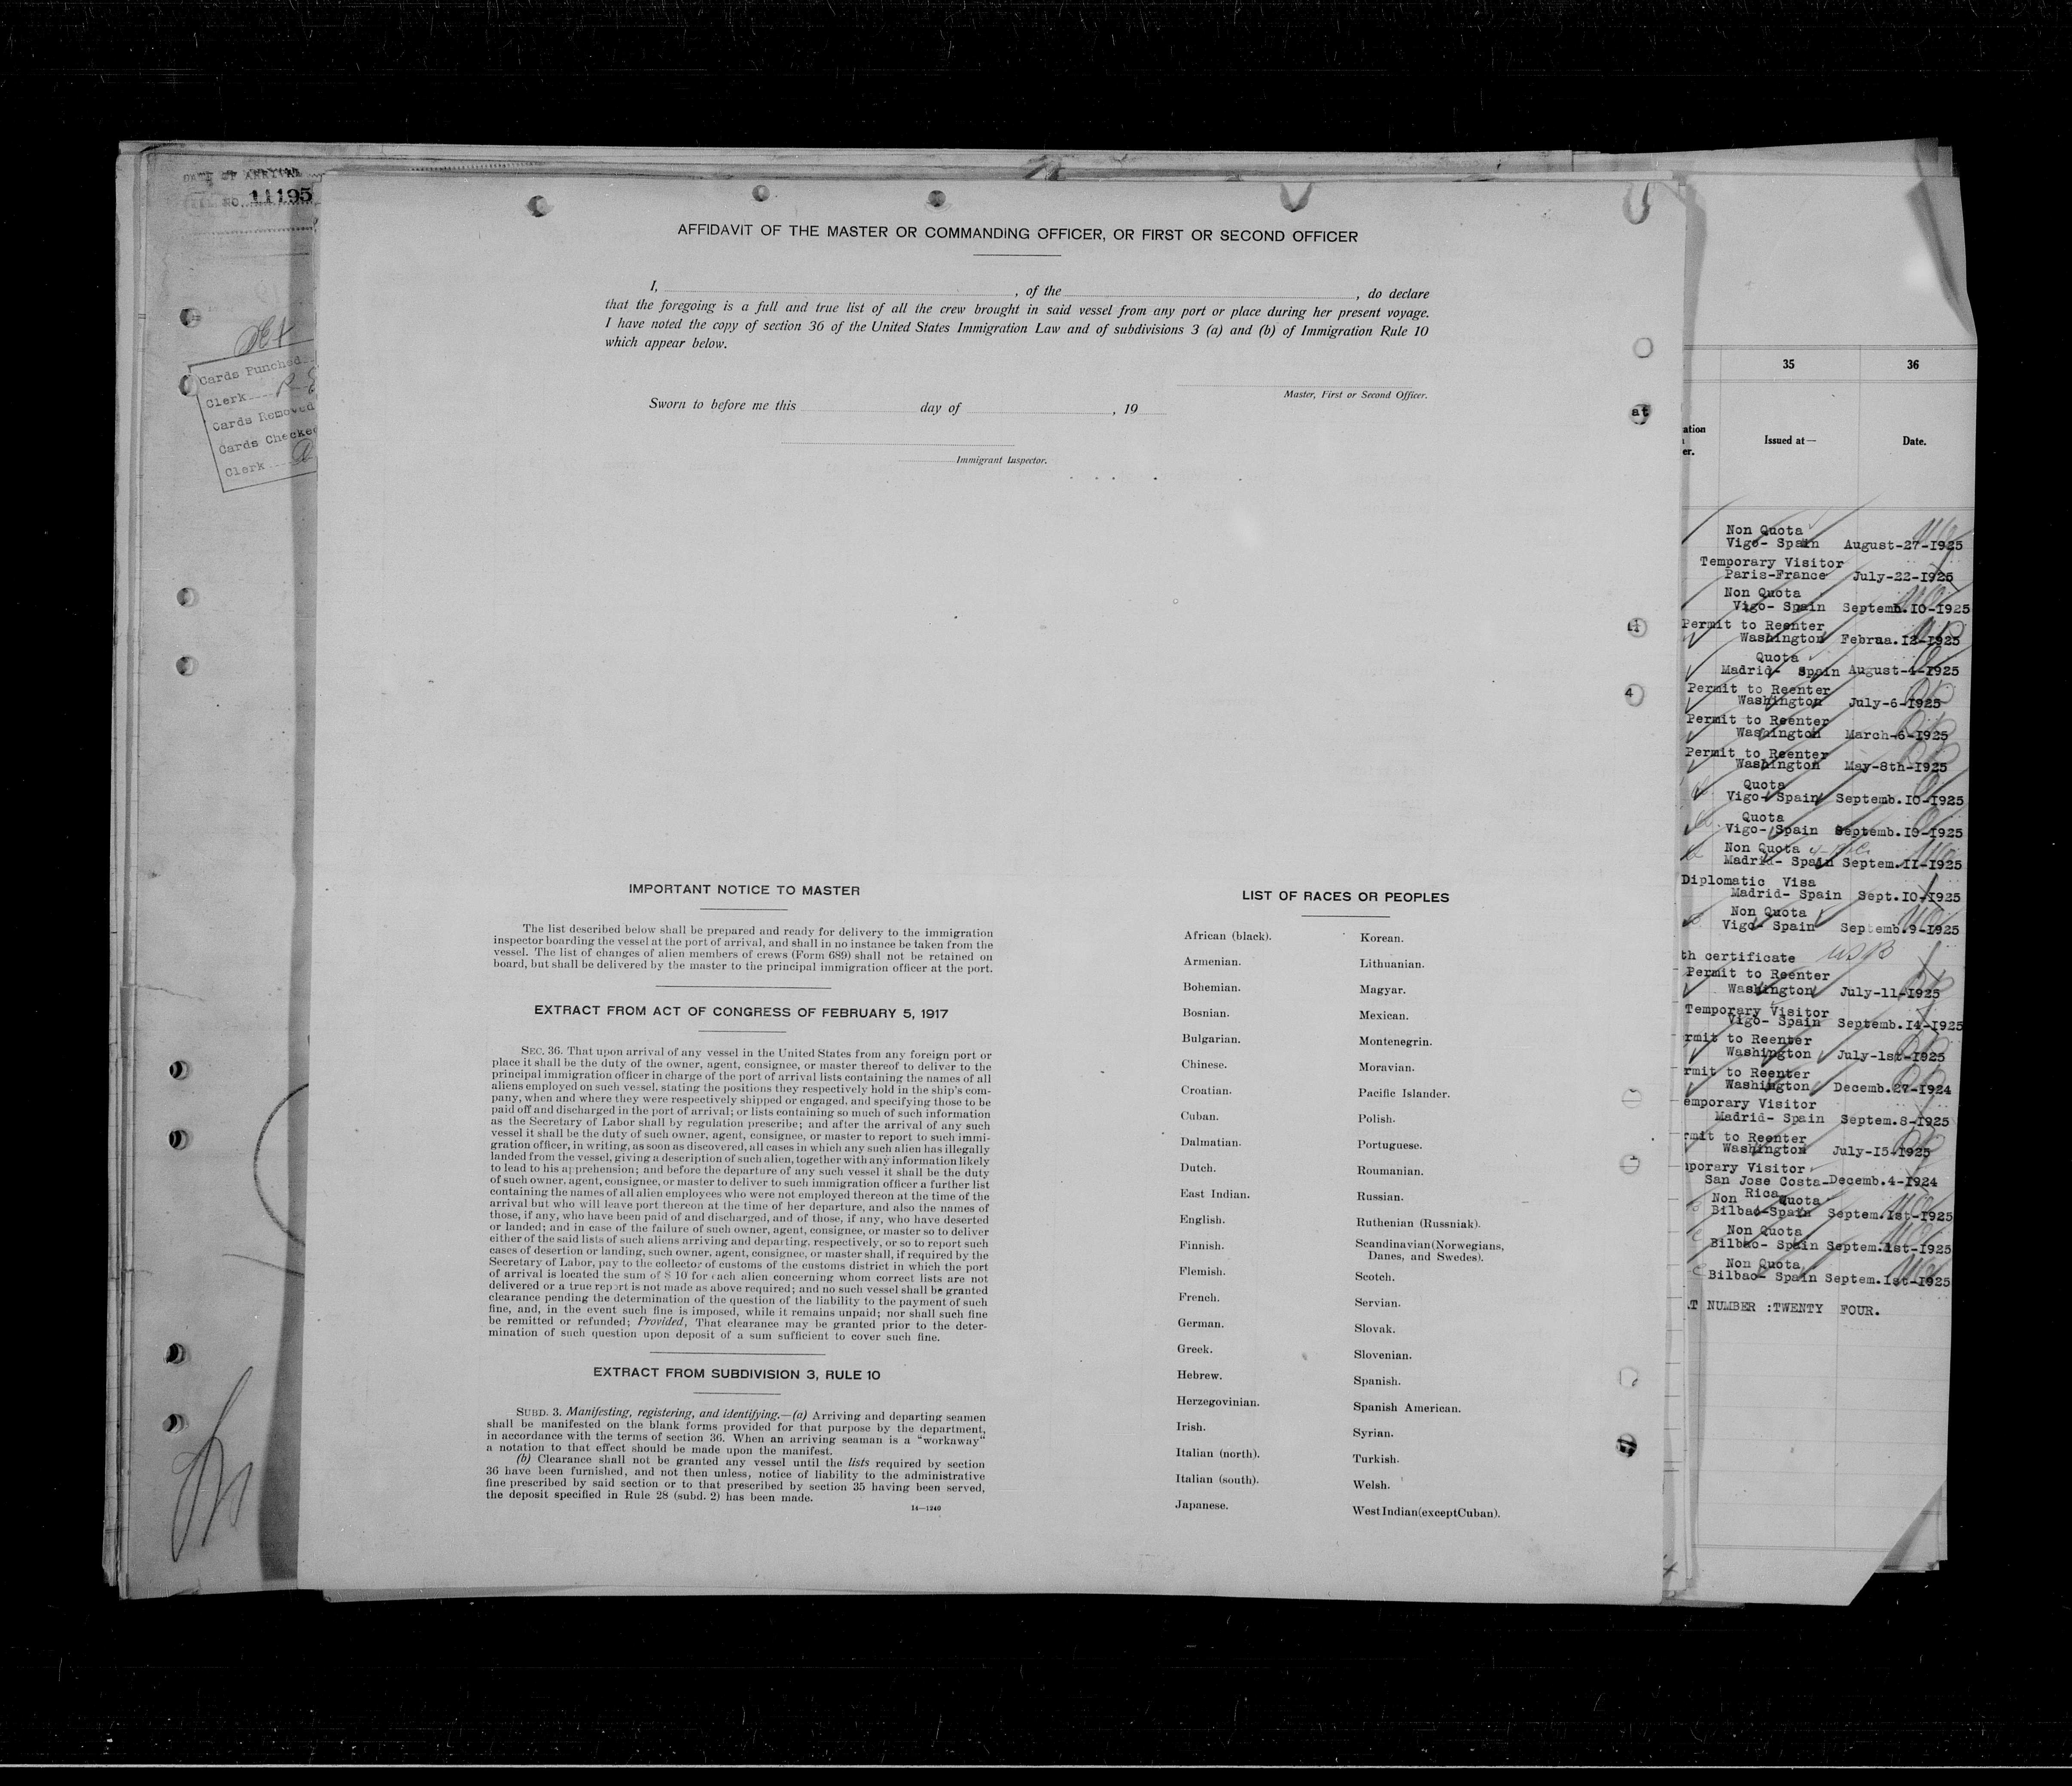 DATE OF ARRIVAL
NO. 11195
Cards Punched
Clerk
Cards Removed
Cards Checked
Clerk
AFFIDAVIT OF THE MASTER OR COMMANDING OFFICER, OR FIRST OR SECOND OFFICER
I, , of the , do declare
that the foregoing is a full and true list of all the crew brought in said vessel from any port or place during her present voyage.
I have noted the copy of section 36 of the United States Immigration Law and of subdivisions 3 (a) and (b) of Immigration Rule 10
which appear below.
Master, First or Second Officer.
Sworn to before me this day of , 19
Immigrant Inspector.
IMPORTANT NOTICE TO MASTER
The list described below shall be prepared and ready for delivery to the immigration
inspector boarding the vessel at the port of arrival, and shall in no instance be taken from the
vessel. The list of changes of alien members of crews (Form 689) shall not be retained on
board, but shall be delivered by the master to the principal immigration officer at the port.
EXTRACT FROM ACT OF CONGRESS OF FEBRUARY 5, 1917
SEC. 36. That upon arrival of any vessel in the United States from any foreign port or
place it shall be the duty of the owner, agent, consignee, or master thereof to deliver to the
principal immigration officer in charge of the port of arrival lists containing the names of all
aliens employed on such vessel, stating the positions they respectively hold in the ship's com-
pany, when and where they were respectively shipped or engaged, and specifying those to be
paid off and discharged in the port of arrival; or lists containing so much of such information
as the Secretary of Labor shall by regulation prescribe; and after the arrival of any such
vessel it shall be the duty of such owner, agent, consignee, or master to report to such immi-
gration officer, in writing, as soon as discovered, all cases in which any such alien has illegally
landed from the vessel, giving a description of such alien, together with any information likely
to lead to his apprehension; and before the departure of any such vessel it shall be the duty
of such owner, agent, consignee, or master to deliver to such immigration officer a further list
containing the names of all alien employees who were not employed thereon at the time of the
arrival but who will leave port thereon at the time of her departure, and also the names of
those, if any, who have been paid of and discharged, and of those, if any, who have deserted
or landed; and in case of the failure of such owner, agent, consignee, or master so to deliver
either of the said lists of such aliens arriving and departing, respectively, or so to report such
cases of desertion or landing, such owner, agent, consignee, or master shall, if required by the
Secretary of Labor, pay to the collector of customs of the customs district in which the port
of arrival is located the sum of $ 10 for each alien concerning whom correct lists are not
delivered or a true report is not made as above required; and no such vessel shall be granted
clearance pending the determination of the question of the liability to the payment of such
fine, and, in the event such fine is imposed, while it remains unpaid; nor shall such fine
be remitted or refunded; Provided, That clearance may be granted prior to the deter-
mination of such question upon deposit of a sum sufficient to cover such fine.
EXTRACT FROM SUBDIVISION 3, RULE 10
SUBD. 3. Manifesting, registering, and identifying.—(a) Arriving and departing seamen
shall be manifested on the blank forms provided for that purpose by the department,
in accordance with the terms of section 36. When an arriving seaman is a "workaway"
a notation to that effect should be made upon the manifest.
(b) Clearance shall not be granted any vessel until the lists required by section
36 have been furnished, and not then unless, notice of liability to the administrative
fine prescribed by said section or to that prescribed by section 35 having been served,
the deposit specified in Rule 28 (subd. 2) has been made.
14—1240
LIST OF RACES OR PEOPLES
African (black).
Armenian.
Bohemian.
Bosnian.
Bulgarian.
Chinese.
Croatian.
Cuban.
Dalmatian.
Dutch.
East Indian.
English.
Finnish.
Flemish.
French.
German.
Greek.
Hebrew.
Herzegovinian.
Irish.
Italian (north).
Italian (south).
Japanese.
Korean.
Lithuanian.
Magyar.
Mexican.
Montenegrin.
Moravian.
Pacific Islander.
Polish.
Portuguese.
Roumanian.
Russian.
Ruthenian (Russniak).
Scandinavian (Norwegians,
Danes, and Swedes).
Scotch.
Servian.
Slovak.
Slovenian.
Spanish.
Spanish American.
Syrian.
Turkish.
Welsh.
West Indian (except Cuban).
at
4
35 36
ation
er.
Issued at— Date.
Non Quota
Vigo- Spain August-27-1925
Temporary Visitor
Paris-France July-22-1925
Non Quota
Vigo- Spain Septemb.10-1925
Permit to Reenter
Washington Februa.12-1925
Quota
Madrid- Spain August-4-1925
Permit to Reenter
Washington July-6-1925
Permit to Reenter
Washington March-6-1925
Permit to Reenter
Washington May-8th-1925
Quota
Vigo- Spain Septemb.10-1925
Quota
Vigo- Spain Septemb.10-1925
Non Quota
Madrid- Spain Septem.11-1925
Diplomatic Visa
Madrid- Spain Sept.10-1925
Non Quota
Vigo- Spain Septemb.9-1925
th certificate USB
Permit to Reenter
Washington July-11-1925
Temporary Visitor
Vigo- Spain Septemb.14-1925
rmit to Reenter
Washington July-1st-1925
rmit to Reenter
Washington Decemb.27-1924
emporary Visitor
Madrid- Spain Septem.8-1925
rmit to Reenter
Washington July-15-1925
porary Visitor
San Jose Costa-Decemb.4-1924
Rica
Non Quota
Bilbao-Spain Septem.1st-1925
Non Quota
Bilbao- Spain Septem.1st-1925
Non Quota
Bilbao- Spain Septem.1st-1925
T NUMBER :TWENTY FOUR.